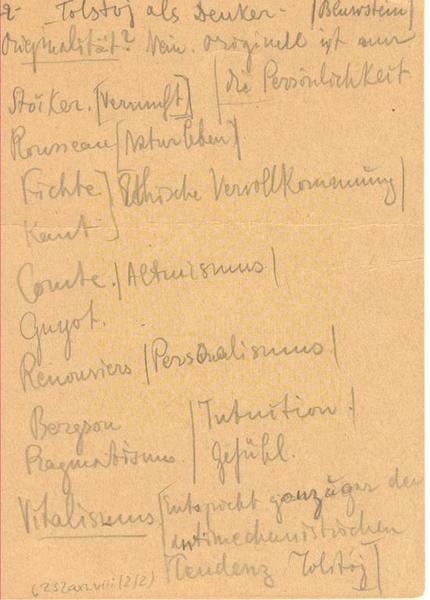 2- Tolstoj als Denker. [Blumstein]
Originalität? Nein. Originell ist nur
die Persönlichkeit
Stoiker. [Vernunft]
Rousseau [Naturleben]
Fichte] Ethische Vervollkommnung|
Kant]
Comte. |Altruismus|
Guyot.
Renouviers |Personalismus|
Bergson |Intuition.|
Pragmatismus | Gefühl.
Vitalismus [Entspricht der
antimechanistischen
Tendenz Tolstoj]
(2/2)